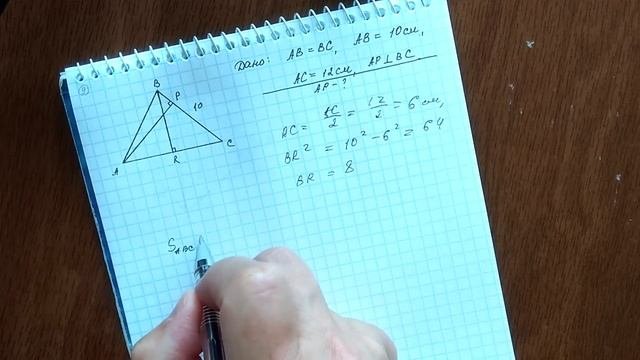 9
Дано: AB = BC, AB = 10см,
AC = 12см, AP ⊥ BC
AP - ?
B
P
10
A
R
C
AC = AC/2 = 12/2 = 6 см,
BR² = 10² - 6² = 64
BR = 8
S_ABC